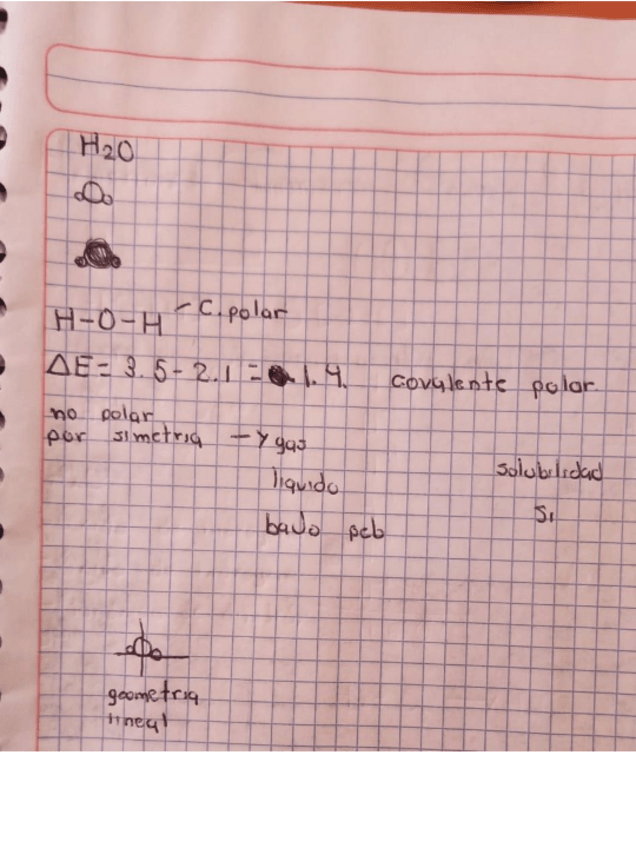 H2O
H-O-H - C. polar
ΔE = 3.5 - 2.1 = 1.4. covalente polar
no polar
por simetria → gas
liquido
solubilidad
bajo peb
Si
geometria
lineal